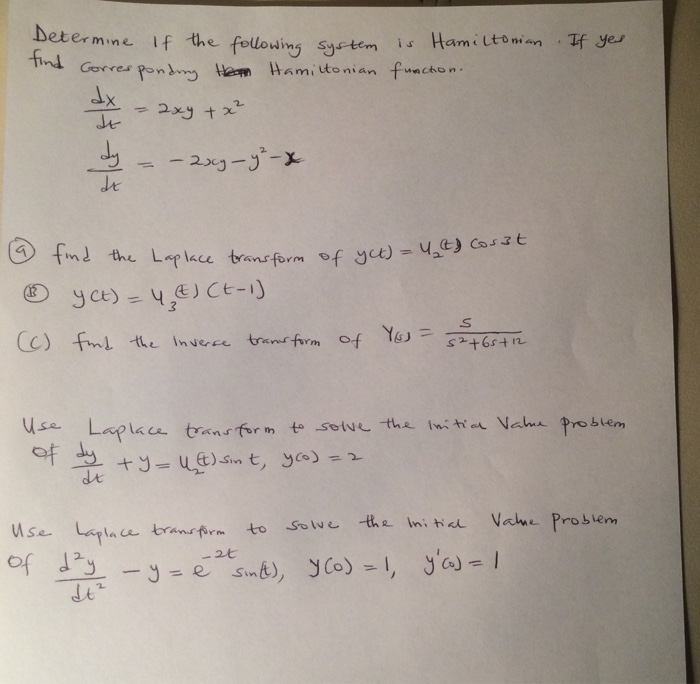 Determine If the following system is Hamiltonian. If yes
find Corresponding Hamiltonian function.
dx/dt = 2xy + x²
dy/dt = -2xy - y² - x
(a) find the Laplace transform of y(t) = u₂(t) cos3t
(B) y(t) = u₃(t) (t-1)
(C) find the Inverse transform of Y(s) = s/(s²+6s+12)
Use Laplace transform to solve the Initial Value problem
of dy/dt + y = u₂(t) sin t, y(0) = 2
Use Laplace transform to solve the Initial Value Problem
of d²y/dt² - y = e^(-2t) sin(t), y(0) = 1, y'(0) = 1